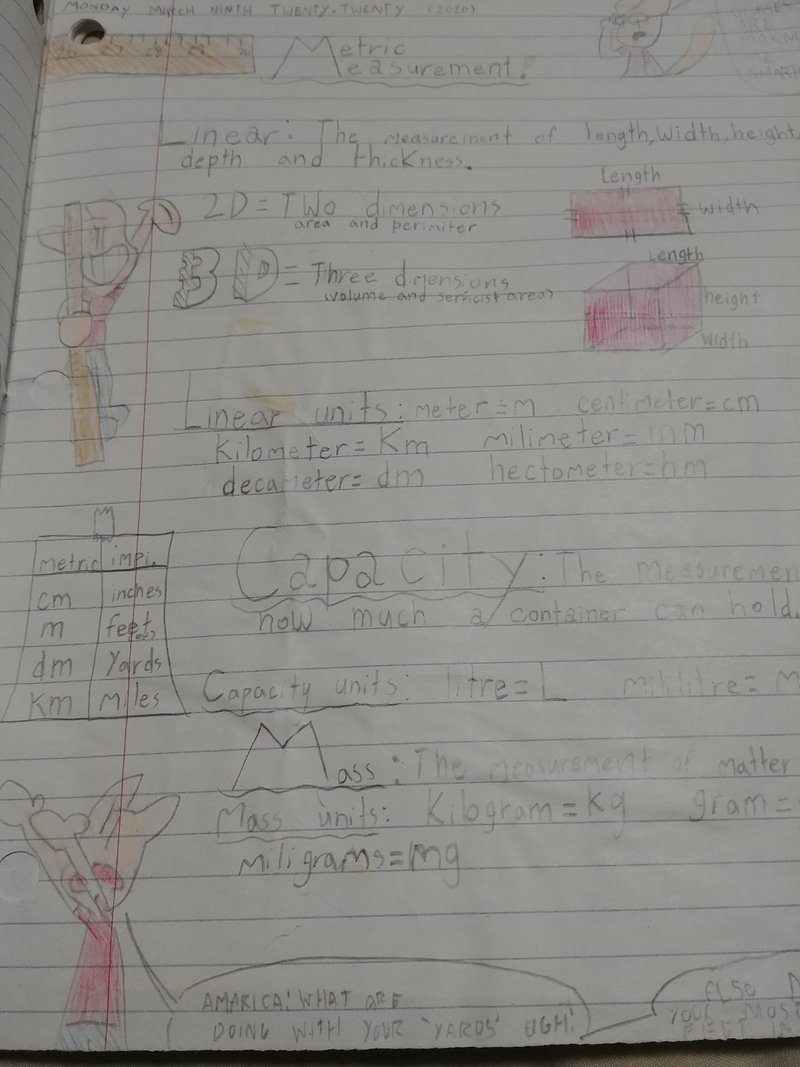 MONDAY MARCH NINTH TWENTY-TWENTY (2020)
Metric
Measurement!
Linear: The measurement of length, width, height,
depth and thickness.
2D = Two dimensions
area and perimiter
Length
width
3D = Three dimensions
(volume and serficist area)
Length
height
width
Linear units: meter = m centimeter = cm
Kilometer = Km milimeter = mm
decameter = dm hectometer = hm
metric impi.
cm inches
m feet
dm Yards
Km Miles
Capacity: The measuremen
how much a container can hold.
Capacity units: litre = L mililitre = m
Mass: The measurement of matter
Mass units: Kilogram = kg gram =
miligrams = mg
AMARICA! WHAT ARE
DOING WITH YOUR "YARDS" UGH!
ALSO
YOUR MOST
FEET IN